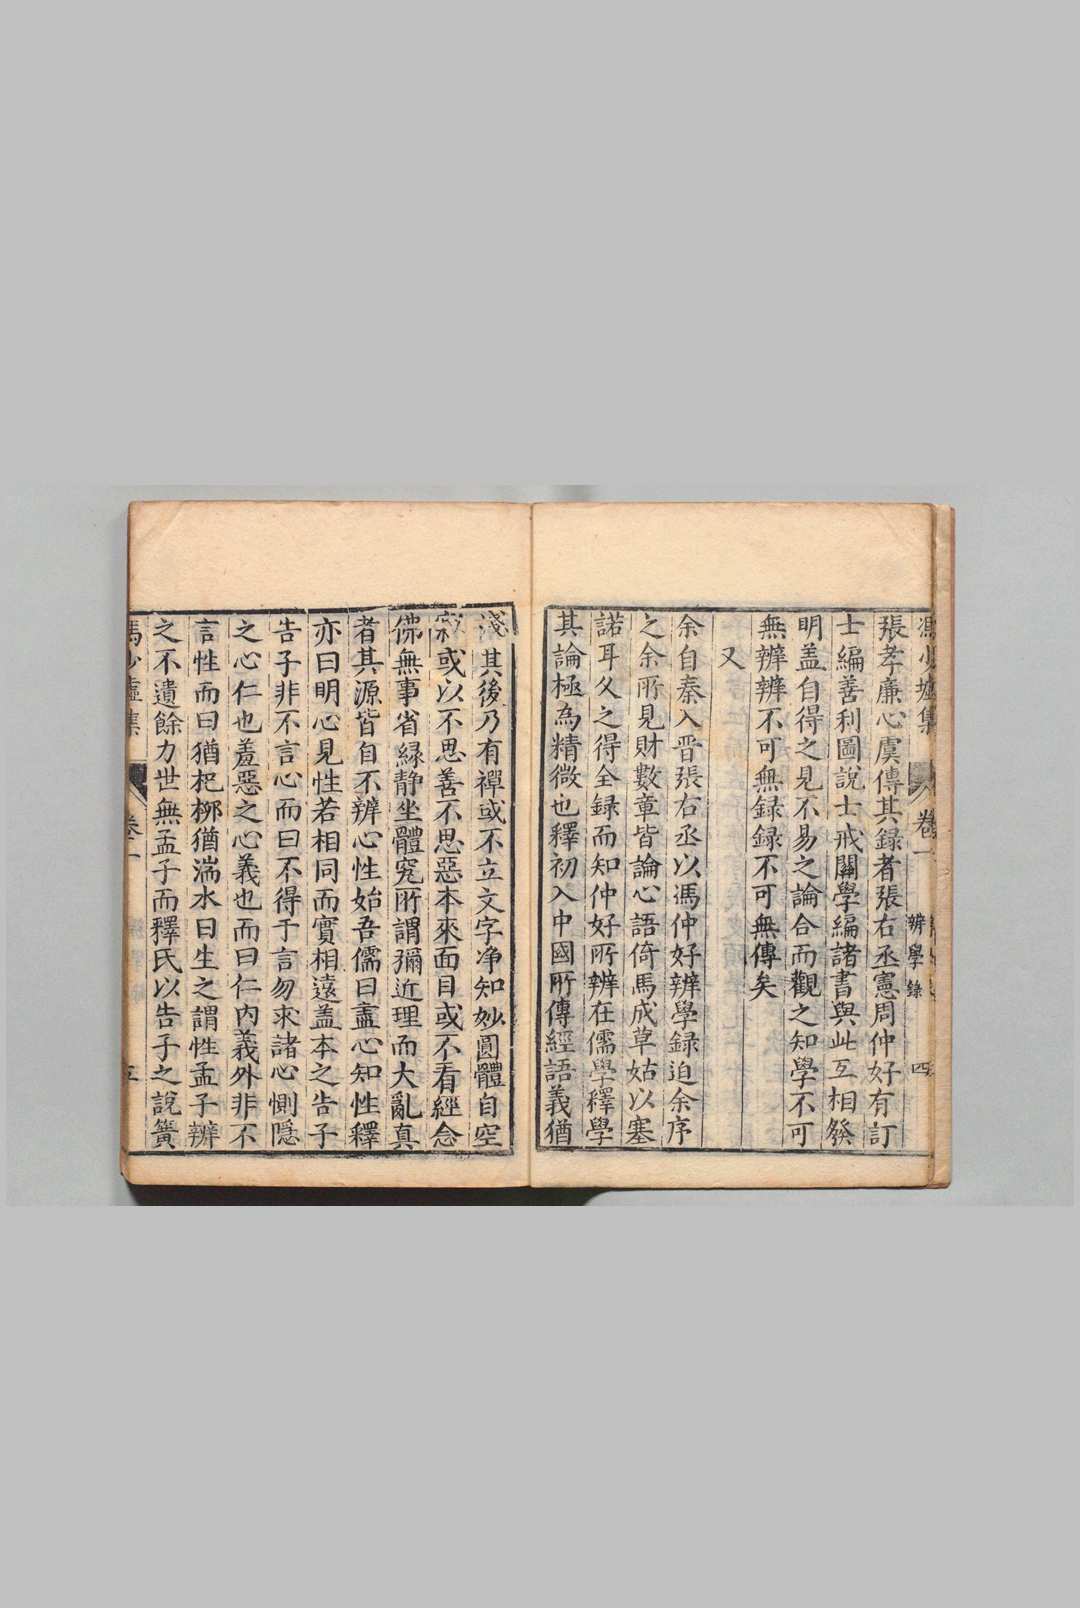 馮少墟集 卷一 辨學錄 四
張孝廉心虞傳其録者張右丞憲周仲好有訂
士編善利圖說士戒關學編諸書與此互相發
明盖自得之見不易之論合而觀之知學不可
無辨辨不可無録録不可無傳矣
又
余自秦入晋張右丞以馮仲好辨學録迫余序
之余所見財數章皆論心語倚馬成草姑以塞
諾耳久之得全録而知仲好所辨在儒學釋學
其論極為精微也釋初入中國所傳經語義猶
淺其後乃有禪或不立文字净知妙圓體自空
寂或以不思善不思惡本來面目或不看經念
佛無事省緣静坐體究所謂彌近理而大亂真
者其源皆自不辨心性始吾儒曰盡心知性釋
亦曰明心見性若相同而實相遠盖本之告子
告子非不言心而曰不得于言勿求諸心惻隱
之心仁也羞惡之心義也而曰仁内義外非不
言性而曰猶杞柳猶湍水曰生之謂性孟子辨
之不遺餘力世無孟子而釋氏以告子之說簧
馮少墟集 卷一 五